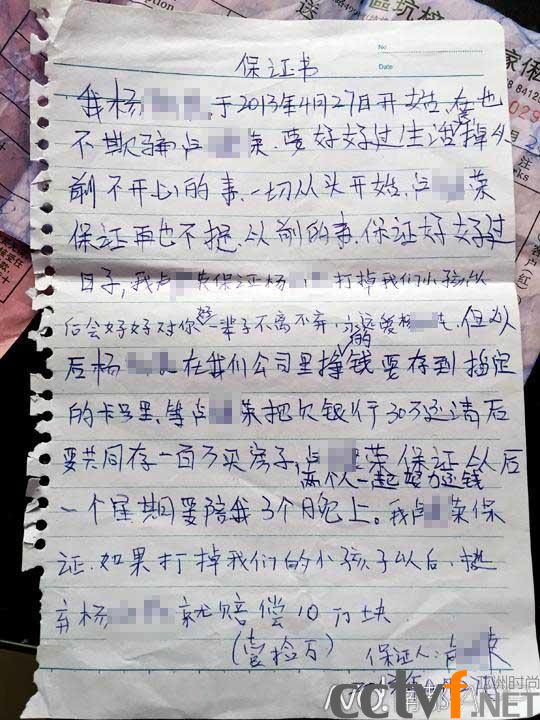 No
Date
保证书
我杨 ,于2013年4月27日开始,在也
不欺骗卢 荣.要好好过生活掉从
前不开心的事.一切从头开始,卢 荣
保证再也不提.从前的事.保证好好过
日子,我卢 荣保证杨 打掉我们小孩以
后会好好对你好一辈子不离不弃,永远爱杨 .但以
后杨 在我们公司里挣的钱要存到指定
的卡号里.等卢 荣把欠银行30万还清后
要共同存一百万买房子,卢 荣保证从后
两个人一起努力还钱
一个星期要陪我3个晚上。我卢 荣保
证.如果打掉我们的小孩子以后.抛
弃杨 就赔偿10万块
(壹拾万)
保证人:卢 荣
亚洲时尚
cctvf.NET